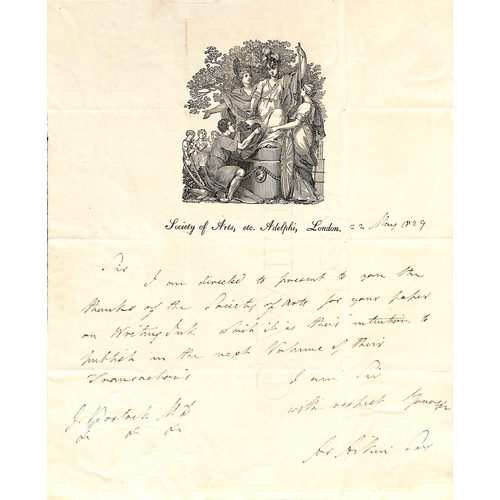 Society of Arts, etc. Adelphi, London. 22 May 1829
Sir
I am directed to present to you the
thanks of the Society of Arts for your paper
on Writing Ink which it is their intention to
publish in the next Volume of their
Transactions
I am Sir
with respect
J. Bostock M.D
&c &c &c
Ar Aikin Sec